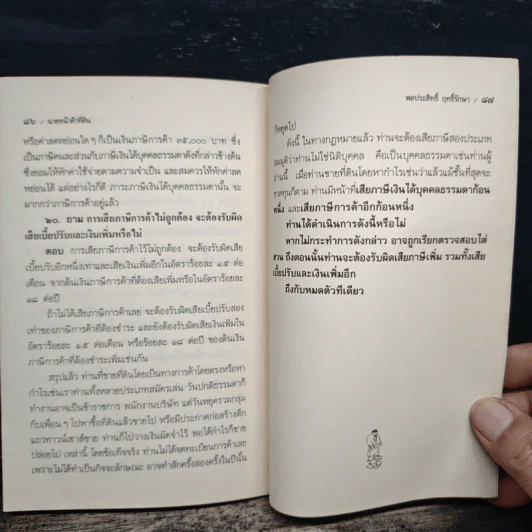 ๘๖ / นายหน้าค้าที่ดิน
หรือค่าลดหย่อนใดๆ ก็เป็นเงินภาษีการค้า ๓๕,๐๐๐ บาท ซึ่ง
เป็นภาษีคนละส่วนกับภาษีเงินได้บุคคลธรรมดาดังที่กล่าวข้างต้น
ซึ่งยอมให้หักค่าใช้จ่ายตามความจำเป็น และสมควรให้หักค่าลด
หย่อนได้ แต่อย่างไรก็ดี ภาระภาษีเงินได้บุคคลธรรมดานั้น จะ
มากกว่าภาษีการค้าอยู่แล้ว
๒๐. ถาม การเสียภาษีการค้าไม่ถูกต้อง จะต้องรับผิด
เสียเบี้ยปรับและเงินเพิ่มหรือไม่
ตอบ การเสียภาษีการค้าไว้ไม่ถูกต้อง จะต้องรับผิดเสีย
เบี้ยปรับอีกหนึ่งเท่าและเสียเงินเพิ่มอีกในอัตราร้อยละ ๑.๕ ต่อ
เดือน จากต้นเงินภาษีการค้าที่ต้องเสียเพิ่มหรือในอัตราร้อยละ
๑๘ ต่อปี
ถ้าไม่ได้เสียภาษีการค้าเลย จะต้องรับผิดเสียเบี้ยปรับสอง
เท่าของภาษีการค้าที่ต้องชำระ และยังต้องรับผิดเสียเงินเพิ่มใน
อัตราร้อยละ ๑.๕ ต่อเดือน หรือร้อยละ ๑๘ ต่อปี ของต้นเงิน
ภาษีการค้าที่ต้องชำระเพิ่มเช่นกัน
สรุปแล้ว ท่านที่ขายที่ดินโดยเป็นทางการค้าโดยตรงหรือหา
กำไรเช่นเราท่านทั้งหลายประเภทสมัครเล่น วันปกติธรรมดาก็
ทำงานอาจเป็นข้าราชการ พนักงานบริษัท แต่วันหยุดรวมกลุ่ม
กับเพื่อนๆ ไปหาซื้อที่ดินแล้วขายไป หรือมีประกาศก่อสร้างตึก
แถวทาวน์เฮาส์ขาย ท่านก็ไปวางเงินมัดจำไว้ พอได้กำไรก็ขาย
ปล่อยไป เหล่านี้ โดยข้อเท็จจริง ท่านไม่ได้จดทะเบียนการค้าเลย
เพราะไม่ได้ทำเป็นกิจจะลักษณะ อาจทำสักครั้งสองครั้งในปีนั้น
พลประสิทธิ์ ฤทธิ์รักษา / ๘๗
ก็หยุดไป
ดังนี้ ในทางกฎหมายแล้ว ท่านจะต้องเสียภาษีสองประเภท
สมมุติว่าท่านไม่ใช่นิติบุคคล คือเป็นบุคคลธรรมดาเช่นท่านผู้
อ่านนี้ เมื่อท่านขายที่ดินโดยหากำไรเช่นว่าแล้วแม้ชั้นที่สุดจะ
ขาดทุนก็ตาม ท่านมีหน้าที่เสียภาษีเงินได้บุคคลธรรมดาก้อน
หนึ่ง และเสียภาษีการค้าอีกก้อนหนึ่ง
ท่านได้ดำเนินการดังนี้หรือไม่
หากไม่กระทำการดังกล่าว อาจถูกเรียกตรวจสอบไต่
สวน ถึงตอนนั้นท่านจะต้องรับผิดเสียภาษีเพิ่ม รวมทั้งเสีย
เบี้ยปรับและเงินเพิ่มอีก
ถึงกับหมดตัวทีเดียว